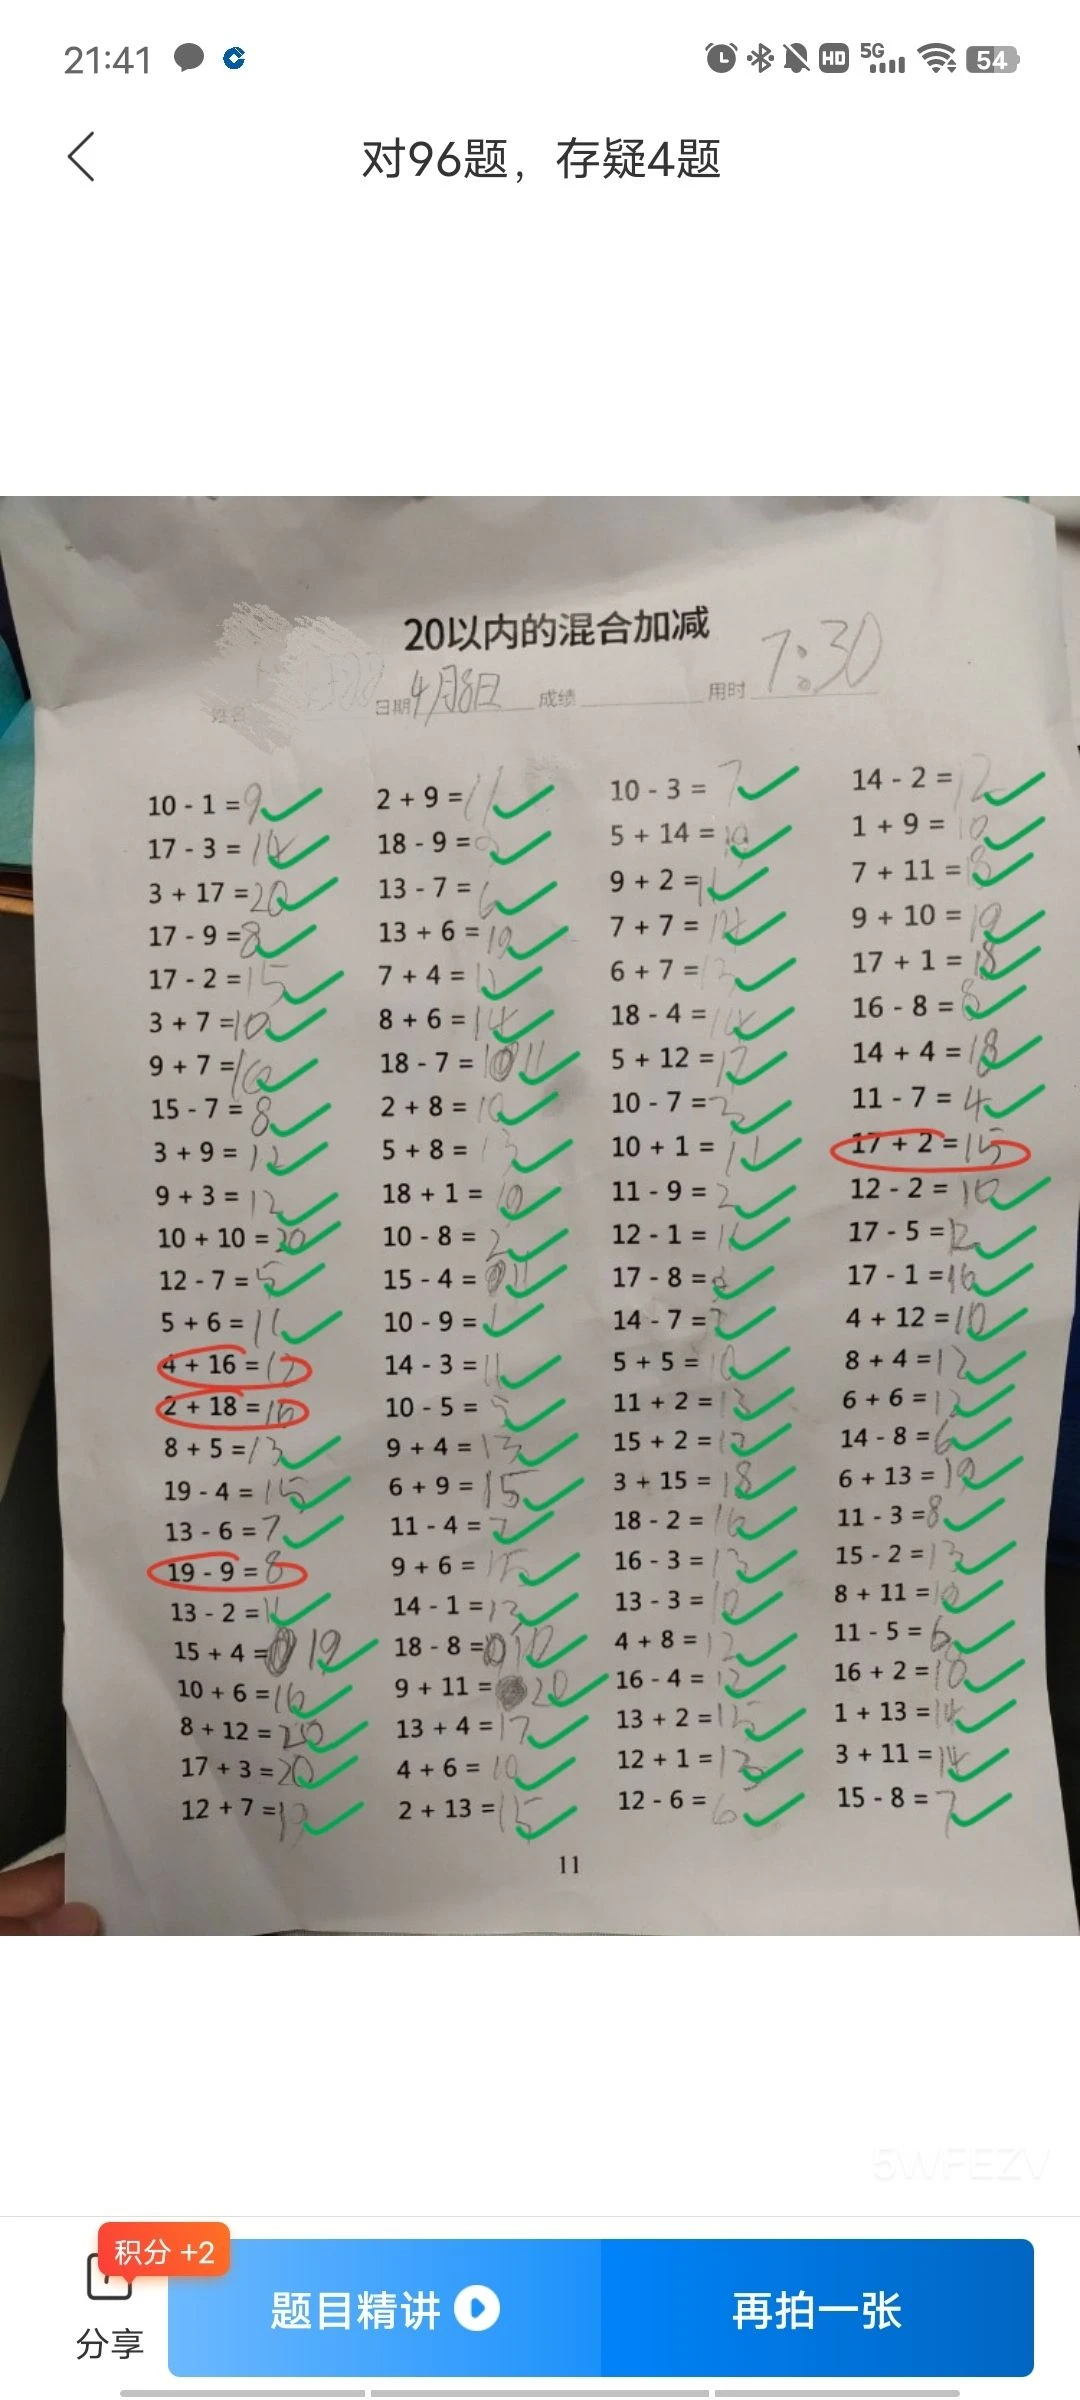 21:41 HD 5G 54
对96题，存疑4题
20以内的混合加减
姓名 日期 4月8日 成绩 用时 7:30
10 - 1 = 9 2 + 9 = 11 10 - 3 = 7 14 - 2 = 12
17 - 3 = 14 18 - 9 = 9 5 + 14 = 19 1 + 9 = 10
3 + 17 = 20 13 - 7 = 6 9 + 2 = 11 7 + 11 = 18
17 - 9 = 8 13 + 6 = 19 7 + 7 = 14 9 + 10 = 19
17 - 2 = 15 7 + 4 = 11 6 + 7 = 13 17 + 1 = 18
3 + 7 = 10 8 + 6 = 14 18 - 4 = 14 16 - 8 = 8
9 + 7 = 16 18 - 7 = 11 5 + 12 = 17 14 + 4 = 18
15 - 7 = 8 2 + 8 = 10 10 - 7 = 3 11 - 7 = 4
3 + 9 = 12 5 + 8 = 13 10 + 1 = 11 17 + 2 = 15
9 + 3 = 12 18 + 1 = 19 11 - 9 = 2 12 - 2 = 10
10 + 10 = 20 10 - 8 = 2 12 - 1 = 11 17 - 5 = 12
12 - 7 = 5 15 - 4 = 11 17 - 8 = 9 17 - 1 = 16
5 + 6 = 11 10 - 9 = 1 14 - 7 = 7 4 + 12 =
4 + 16 = 14 - 3 = 11 5 + 5 = 10 8 + 4 = 12
2 + 18 = 16 10 - 5 = 5 11 + 2 = 13 6 + 6 = 12
8 + 5 = 13 9 + 4 = 13 15 + 2 = 17 14 - 8 = 6
19 - 4 = 15 6 + 9 = 15 3 + 15 = 18 6 + 13 = 19
13 - 6 = 7 11 - 4 = 7 18 - 2 = 16 11 - 3 = 8
19 - 9 = 8 9 + 6 = 15 16 - 3 = 13 15 - 2 = 13
13 - 2 = 11 14 - 1 = 13 13 - 3 = 10 8 + 11 = 19
15 + 4 = 19 18 - 8 = 10 4 + 8 = 12 11 - 5 = 6
10 + 6 = 16 9 + 11 = 20 16 - 4 = 12 16 + 2 = 18
8 + 12 = 20 13 + 4 = 17 13 + 2 = 15 1 + 13 = 14
17 + 3 = 20 4 + 6 = 10 12 + 1 = 13 3 + 11 = 14
12 + 7 = 19 2 + 13 = 15 12 - 6 = 6 15 - 8 = 7
11
5WFEZV
积分 +2
分享 题目精讲 再拍一张